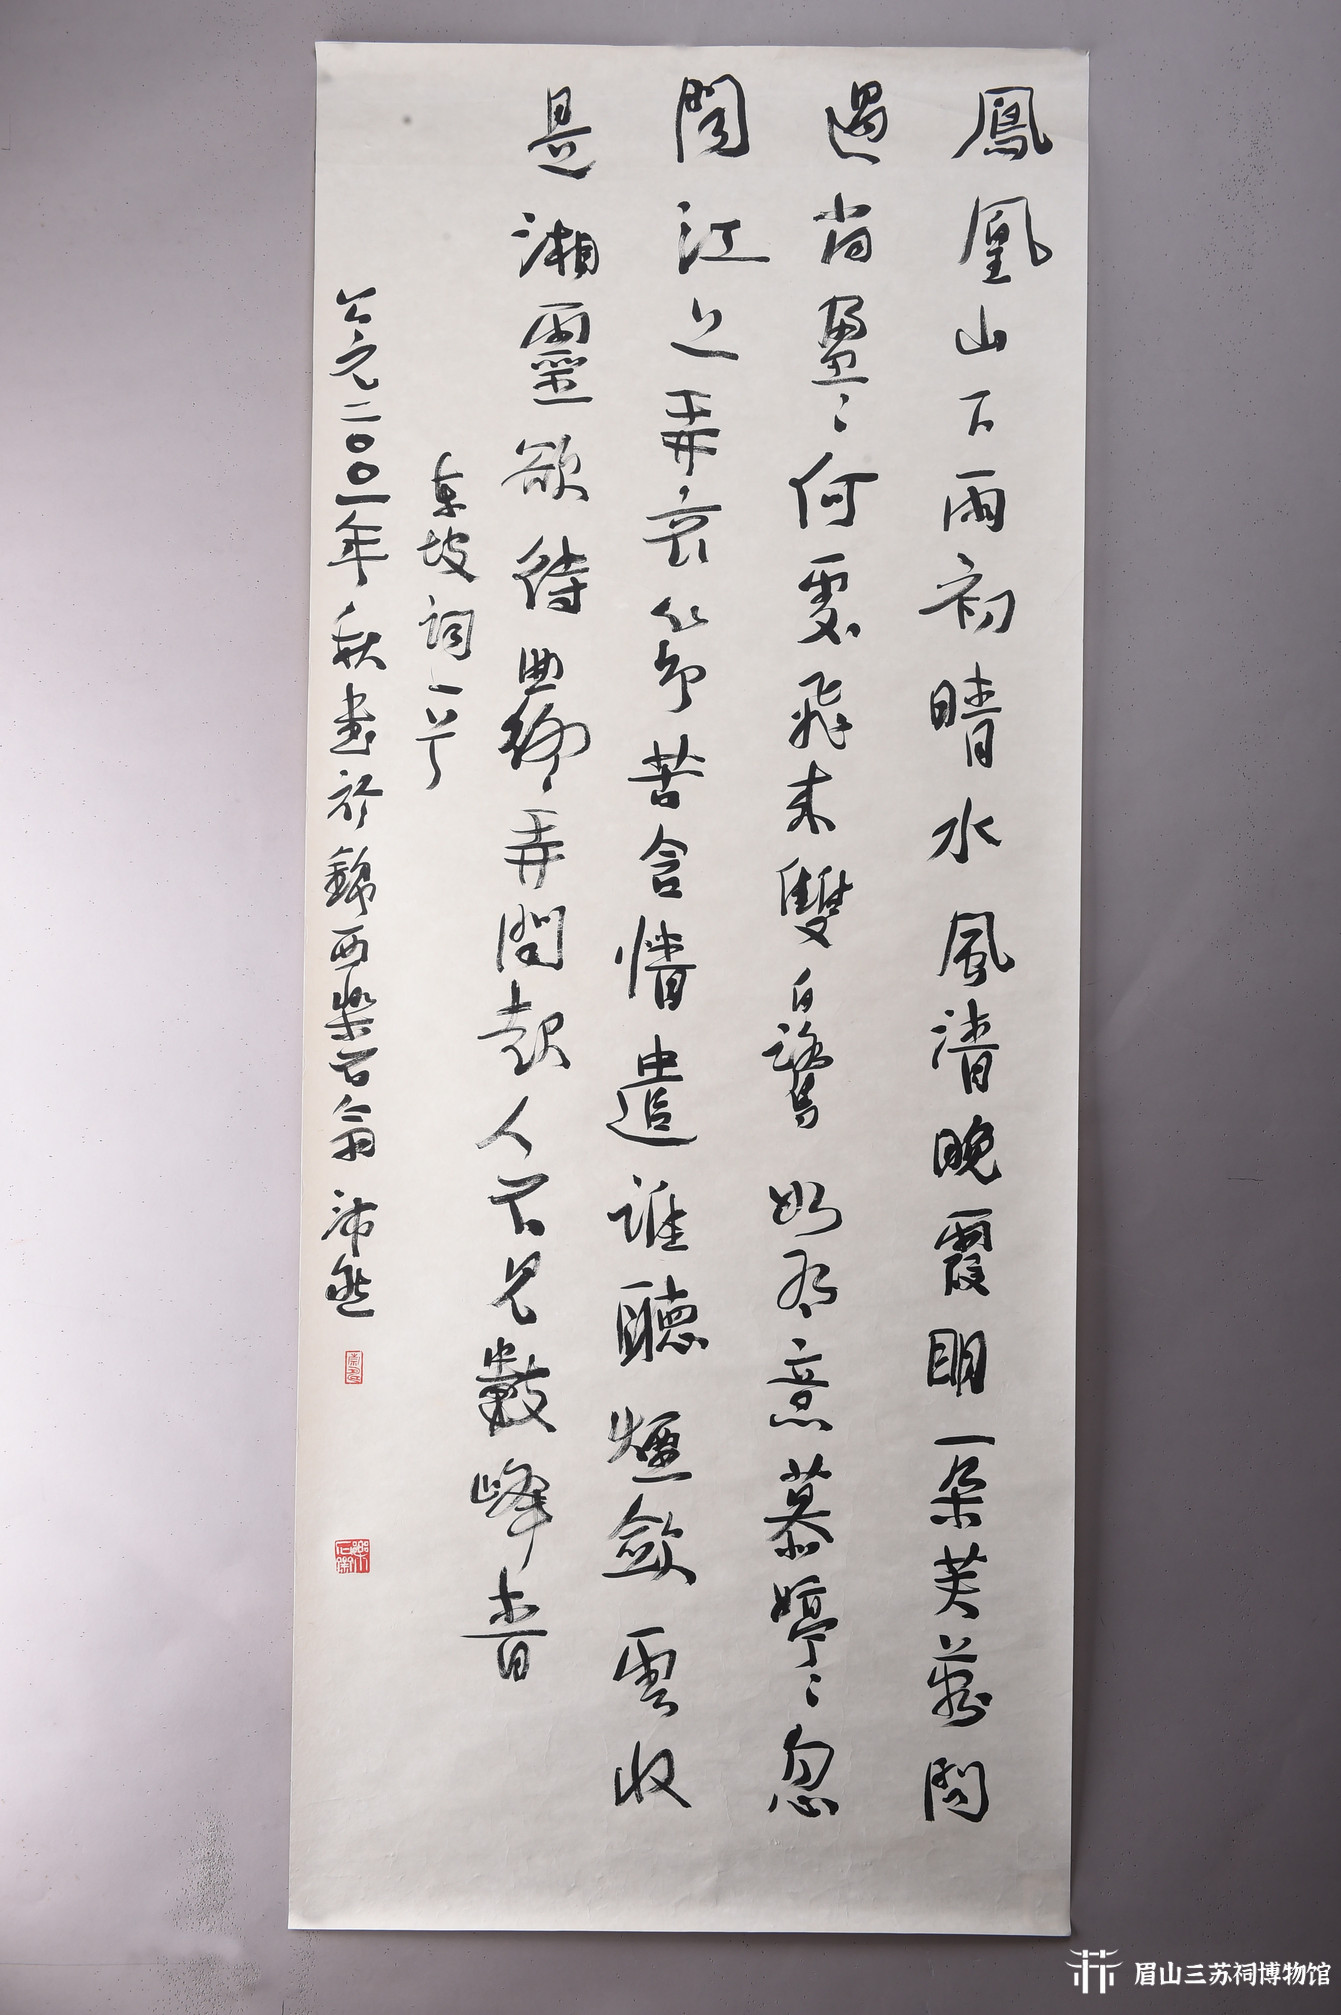 鳳凰山下雨初晴水風清晚霞明一朵芙蕖開
過尚盈〻何處飛來雙白鷺如有意慕婷〻忽
聞江上弄哀箏苦含情遣誰聽煙斂雲收
是湘靈欲待曲終尋問取人不見數峰青
東坡詞一首
公元二〇〇一年秋書於錦西樂石翁沛然
眉山三苏祠博物馆